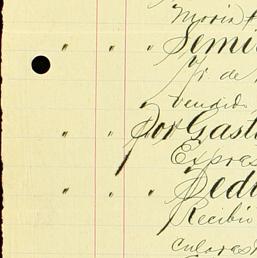 Maria
" " " Semi
Yr de
vendid
" " " Por Gast
Expres
" " " Pedr
Recibio
culares